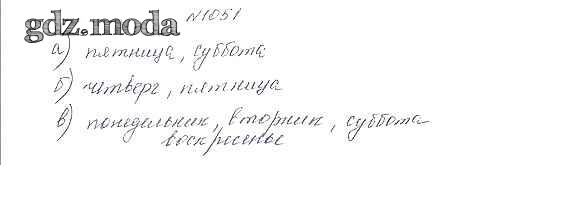 №1051
gdz.moda
а) пятница, суббота
б) четверг, пятница
в) понедельник, вторник, суббота
воскресенье